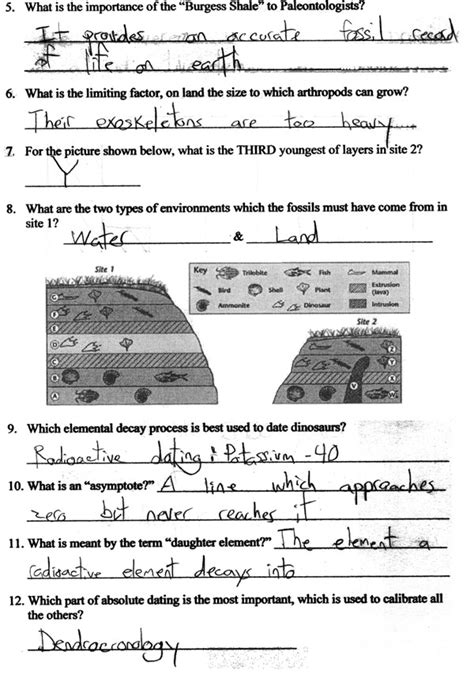 5. What is the importance of the "Burgess Shale" to Paleontologists?
It provides an accurate fossil record
of life on earth
6. What is the limiting factor, on land the size to which arthropods can grow?
Their exoskeletons are too heavy
7. For the picture shown below, what is the THIRD youngest of layers in site 2?
Y
8. What are the two types of environments which the fossils must have come from in
site 1?
Water & Land
Site 1
Key Trilobite Fish Mammal
Bird Shell Plant Extrusion (lava)
Ammonite Dinosaur Intrusion
Site 2
G
F
E
D
C
B
A
Z
Y
X
V
W
9. Which elemental decay process is best used to date dinosaurs?
Radioactive dating : Potassium -40
10. What is an "asymptote?" A line which approaches
zero but never reaches it
11. What is meant by the term "daughter element?" The element a
radioactive element decays into
12. Which part of absolute dating is the most important, which is used to calibrate all
the others?
Dendrocronology